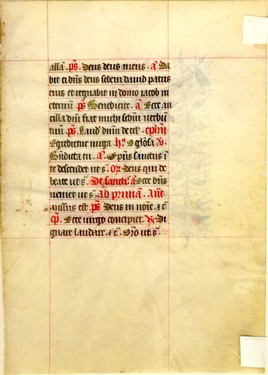 allā. ps̄. Deus deus meus. ā Da
bit ei dn̄s deus sedem dauid patris
eius et regnabit in domo iacob in
eternū ps̄ Benedicite. ā Ecce an
cilla dnī fiat michi scdm̄ uerbū
tuū. ps̄. Laud' dnm̄ de cel'.
Egredietur uirga h. O gl'osa
Bn̄dicta tu. a. Sp̄us sanctus ī
te descendet ut s̄. Deus qui de
beate ut s̄. De sanctis. ā Ecce dn̄s
ueniet ut s̄. ad primā. Añt.
missus est. ps̄ Deus in noīe. ⁊ c̄
Ecce uirgo concipiet. Di
gnare laudare. ⁊ c̄. Or̄o ut s̄.